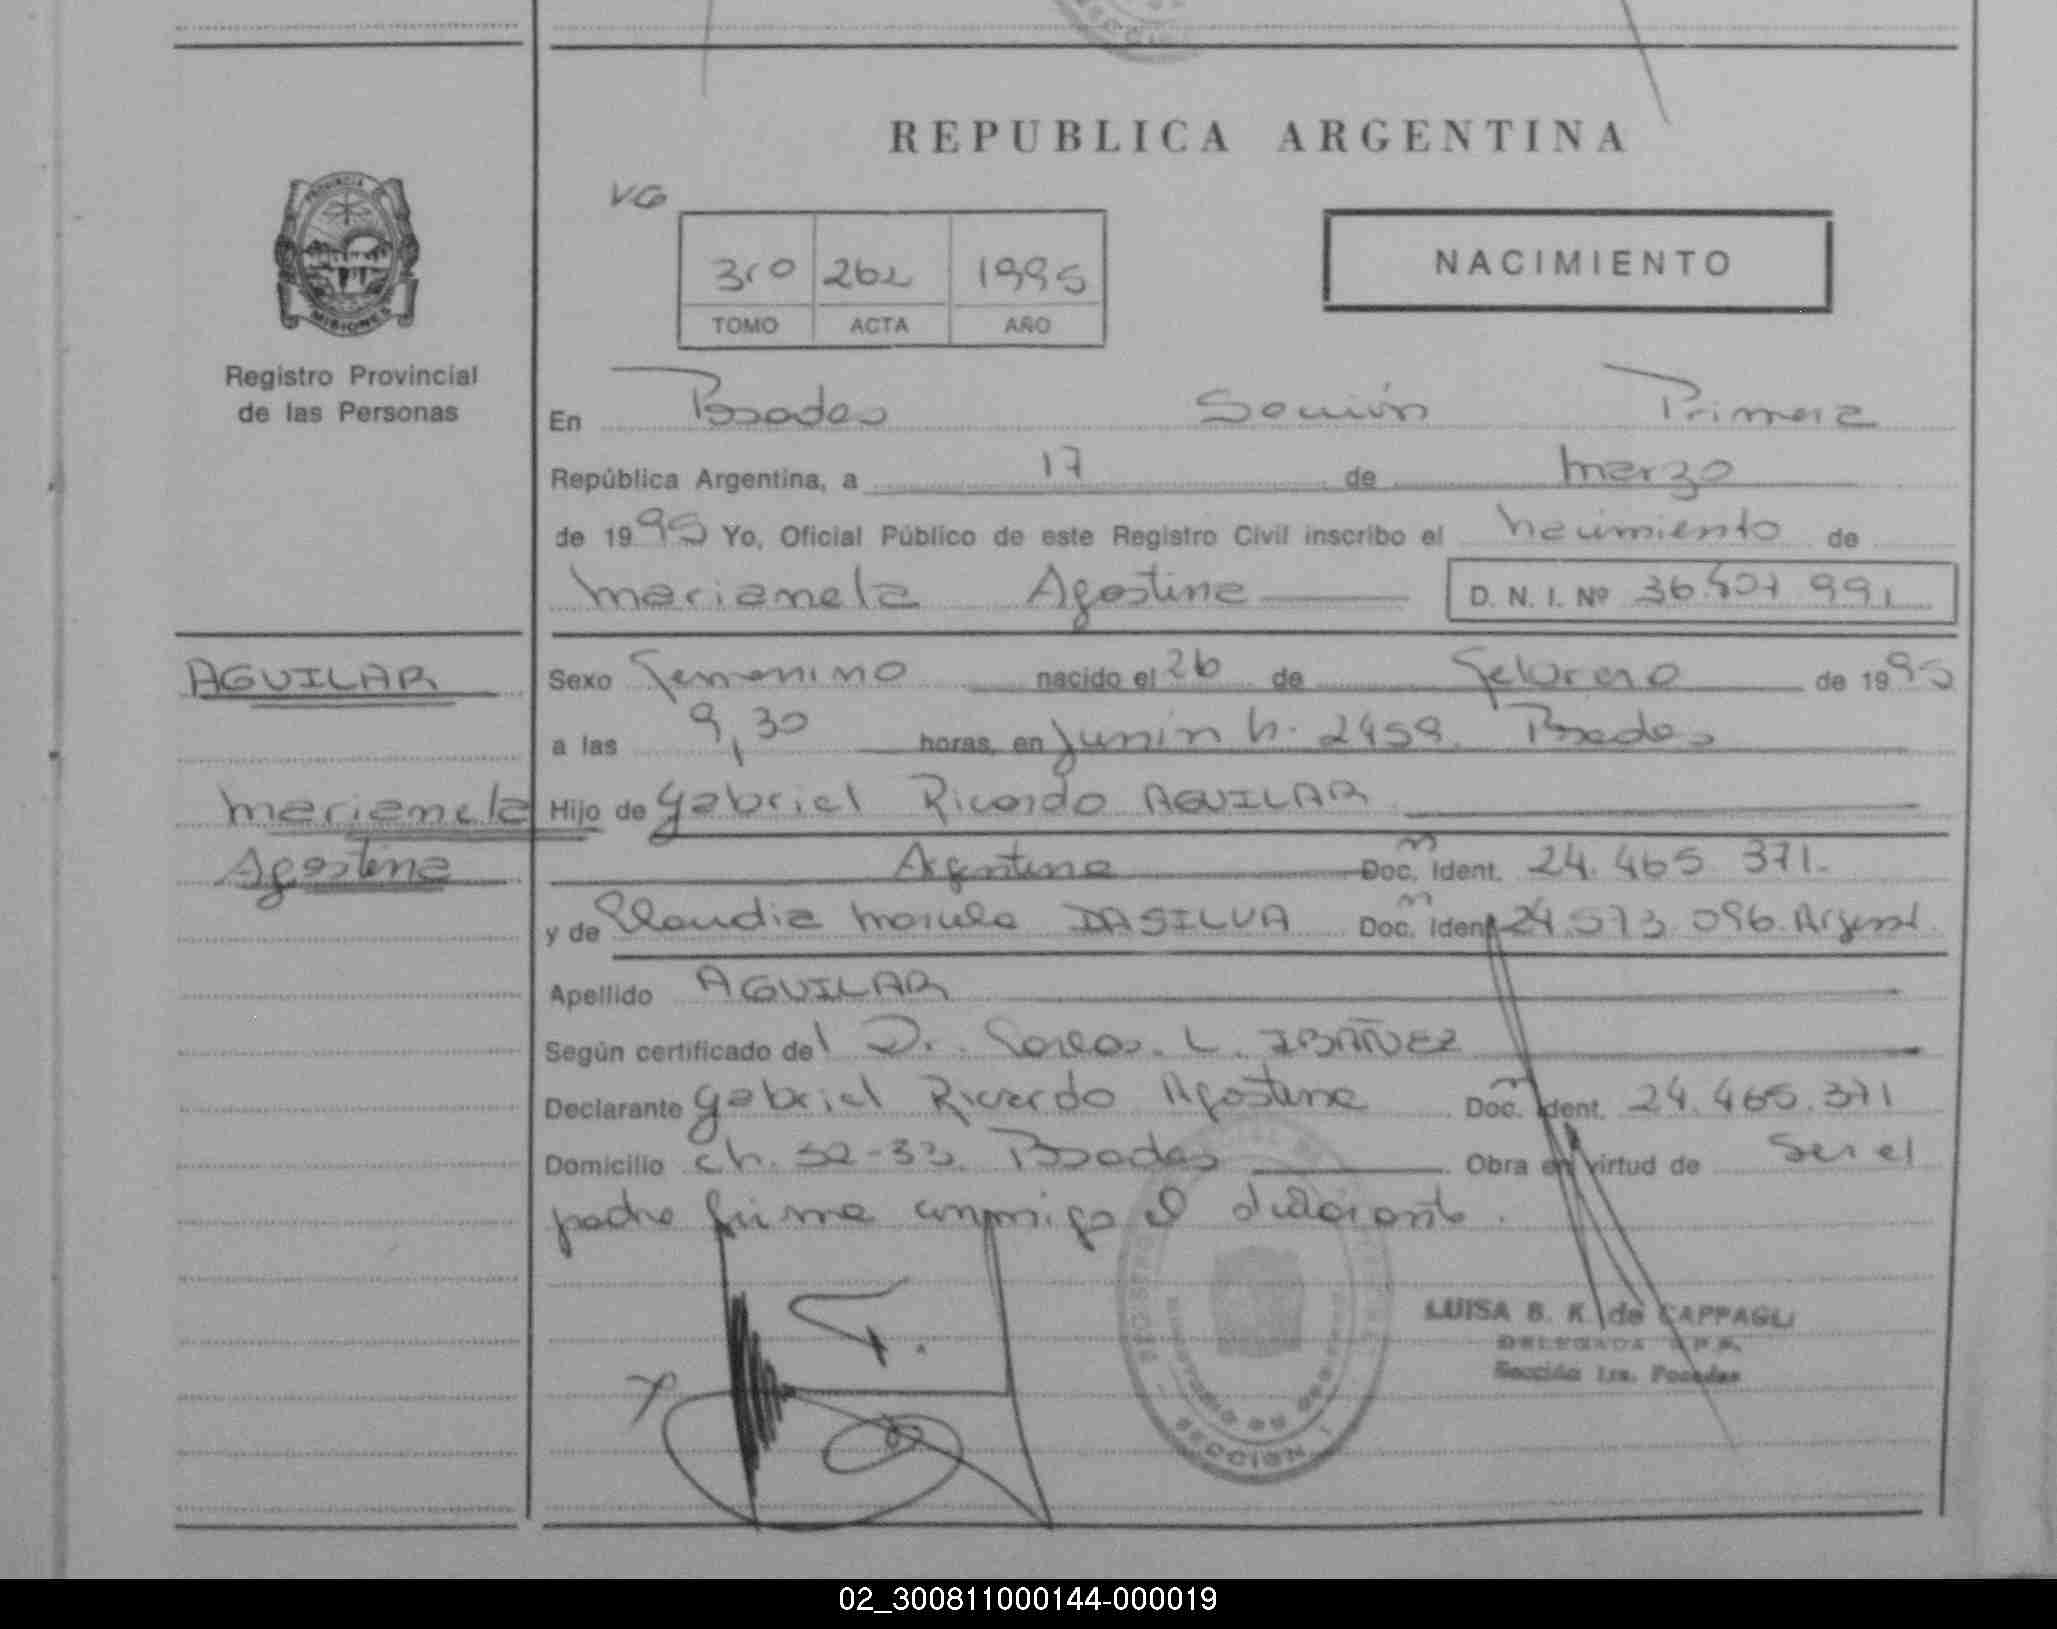 REPUBLICA ARGENTINA
VG
3ro 262 1995
TOMO ACTA AÑO
NACIMIENTO
PROVINCIA
MISIONES
Registro Provincial
de las Personas
En Posadas Sección Primera
República Argentina, a 17 de marzo
de 1995 Yo, Oficial Público de este Registro Civil inscribo el nacimiento de
Marianela Agostina D. N. I. Nº 991
AGUILAR
Marianela
Agostina
Sexo femenino nacido el 26 de febrero de 1995
a las 9,30 horas, en Junín n. 2459. Posadas
Hijo de Gabriel Ricardo AGUILAR
Argentino Doc. Ident. 24.465.371.
y de Claudia DASILVA Doc. Ident. 24.573.096. Argent.
Apellido AGUILAR
Según certificado del Dr. Carlos L. IBAÑEZ
Declarante Gabriel Ricardo Agostina Doc. Ident. 24.465.371
Domicilio ch. 32-33. Posadas Obra en virtud de ser el
padre firma conmigo el declarante.
LUISA B. K. de CAPPAGLI
DELEGADA R.P.P.
Sección 1ra. Posadas
SECCION 1
02_300811000144-000019